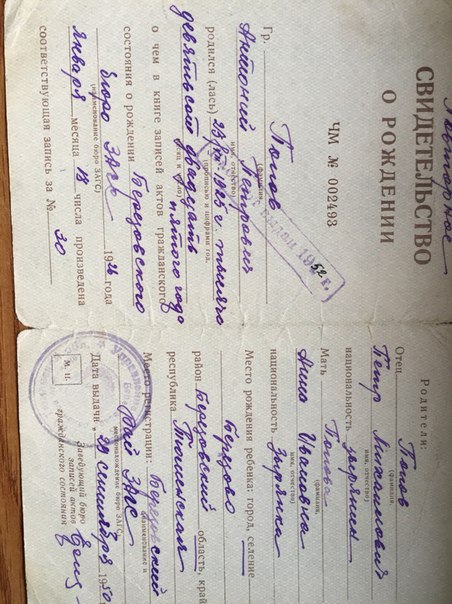 Повторное
СВИДЕТЕЛЬСТВО
О РОЖДЕНИИ
ЧМ № 002493
Гр. Попов
(фамилия,
Антоний Петрович
имя, отчество)
родился (лась) 1925 г. тысяча
(прописью и цифрами год,
девятьсот двадцать пятого года
месяц и число)
о чем в книге записей актов гражданского
состояния о рождении Березовского
бюро ЗАГС 1926 года
(наименование бюро ЗАГС)
января месяца 18 числа произведена
соответствующая запись за № 30
Родители:
Отец Попов
(фамилия,
Петр Михайлович
имя, отчество)
национальность зырянин
Мать Попова
(фамилия,
Анна Ивановна
имя, отчество)
национальность зырянка
Место рождения ребенка: город, селение
Березово
район Березовский область, край
республика Тюменская
Место регистрации: Березовский
(наименование и
Рай ЗАГС
местонахождение бюро ЗАГС)
Дата выдачи „29 сентября 1950
М. П.
Заведующий бюро
записей актов
гражданского состояния